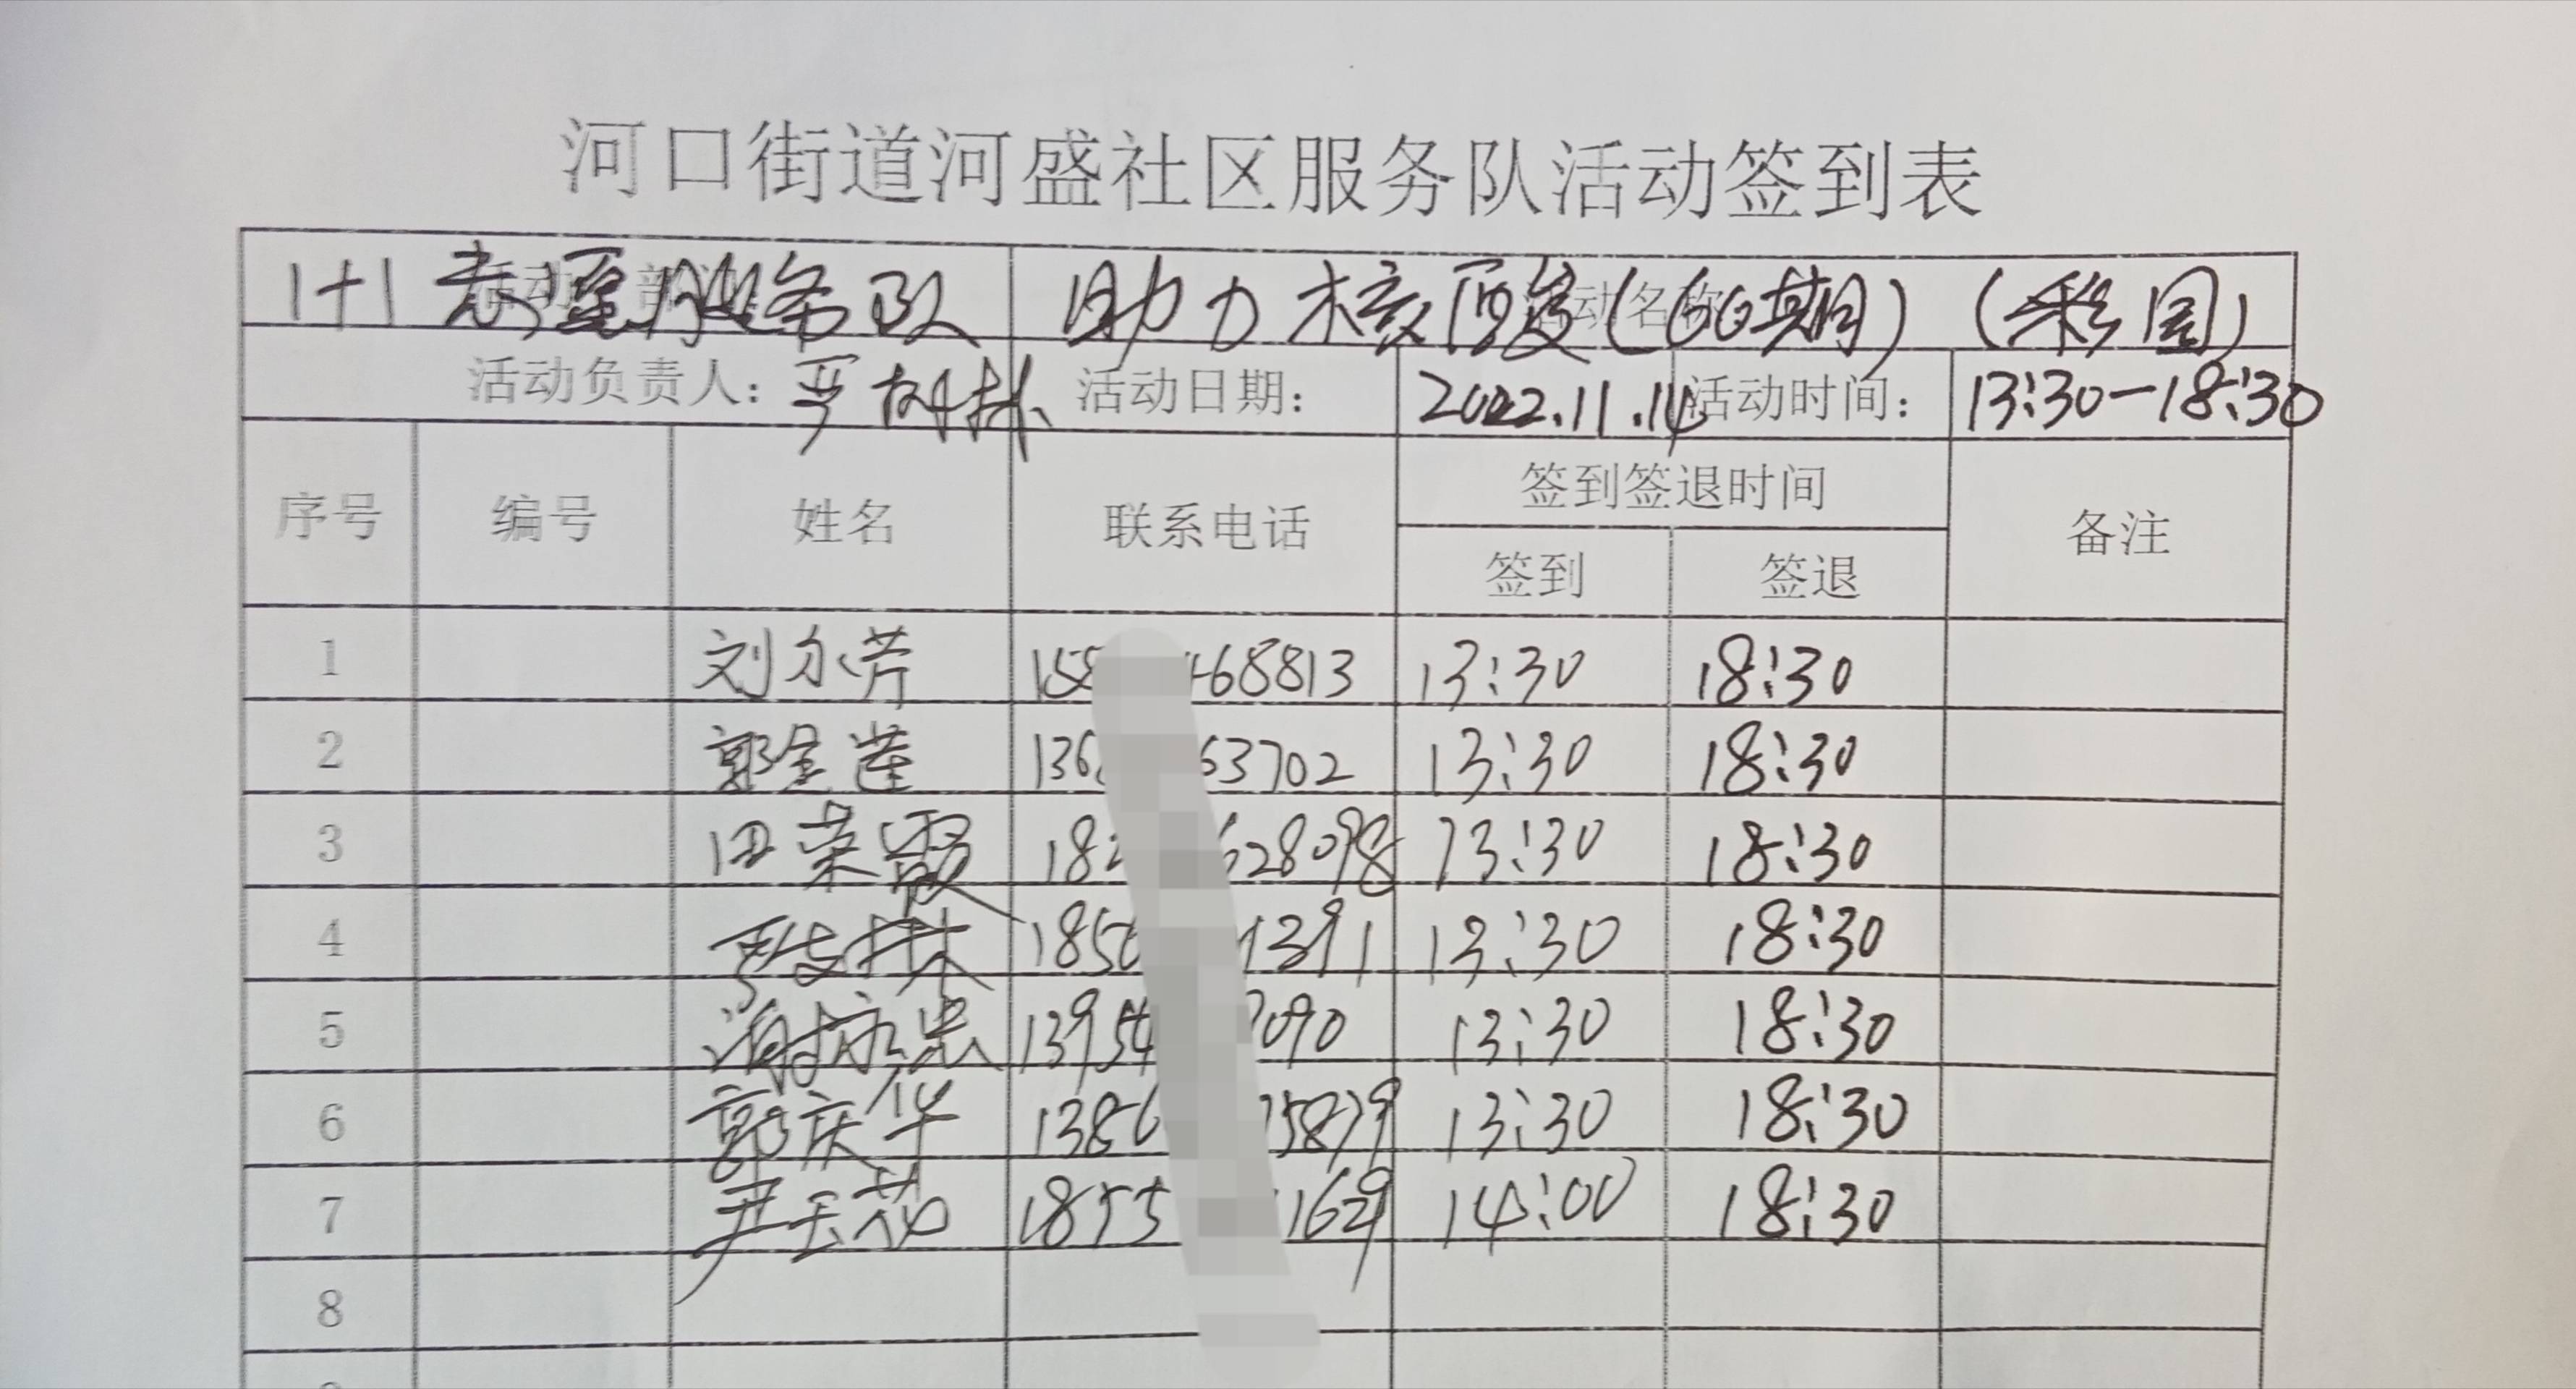 河口街道河盛社区服务队活动签到表
1+1 志愿服务队 助力核酸(60期)(彩园)
活动负责人: 严树林 活动日期: 2022.11.14 活动时间: 13:30-18:30
序号 编号 姓名 联系电话 签到签退时间 备注
签到 签退
1 刘尔芹 158 468813 13:30 18:30
2 郭金莲 136 63702 13:30 18:30
3 田荣霞 182 628098 13:30 18:30
4 1850 1391 13:30 18:30
5 13954 7090 13:30 18:30
6 郭庆华 1386 15879 13:30 18:30
7 尹玉花 1855 1629 14:00 18:30
8